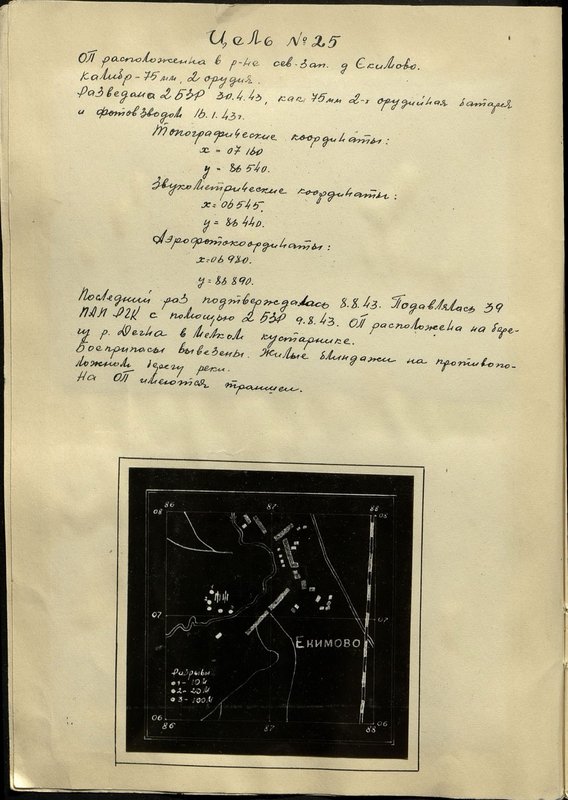 Цель № 25
ОП расположенна в р-не сев-зап. д Екимово.
Калибр-75мм, 2 орудия.
Разведана 2 БЗР 30.4.43, как 75мм 2-х орудийная батарея
и фотовзводом 16.1.43г.
Топографические координаты:
x = 07160
y = 86540.
Звукометрические координаты:
x = 06545.
y = 86440.
Аэрофотокоординаты:
x = 06980.
y = 86890.
Последний раз подтверждалась 8.8.43. Подавлялась 39
ПАП РГК с помощью 2 БЗР 9.8.43. ОП расположена на бере-
гу р. Дегна в мелком кустарнике.
Боеприпасы вывезены. Жилые блиндажи на противопо-
ложном берегу реки.
На ОП имеются траншеи.
86 87 88
08 08
07 07
Екимово
Разрывы
1 - 10 м
2 - 20 м
3 - 100 м
06 06
86 87 88